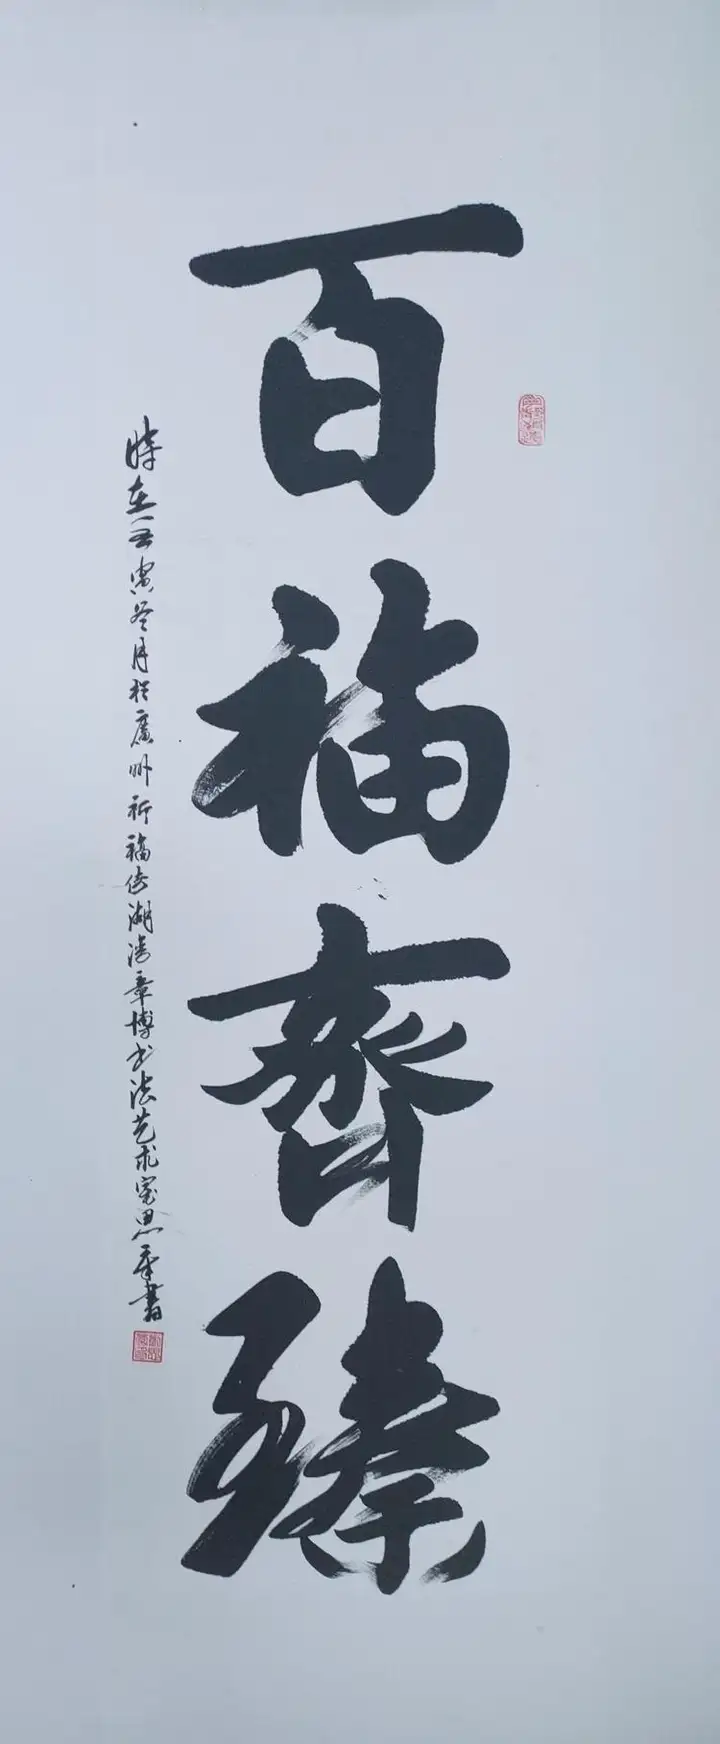 百福齊臻
時在壬寅冬月於廣州祈福倚湖湾章博书法艺术室思華書